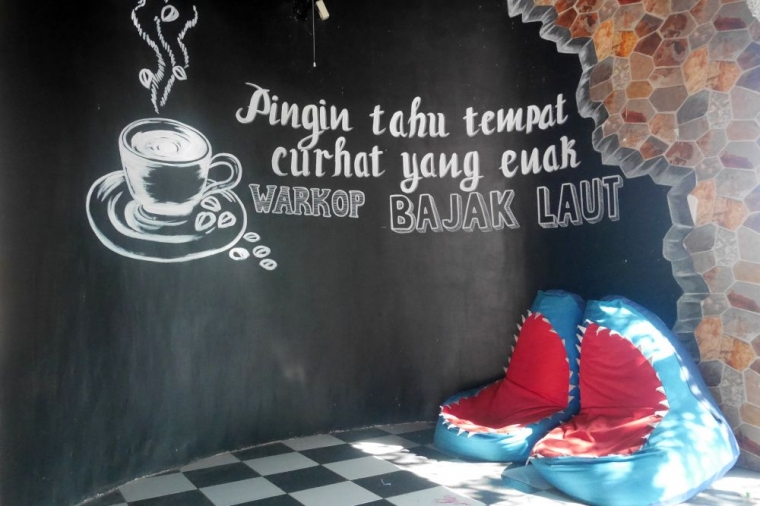 Pingin tahu tempat
curhat yang enak
WARKOP BAJAK LAUT